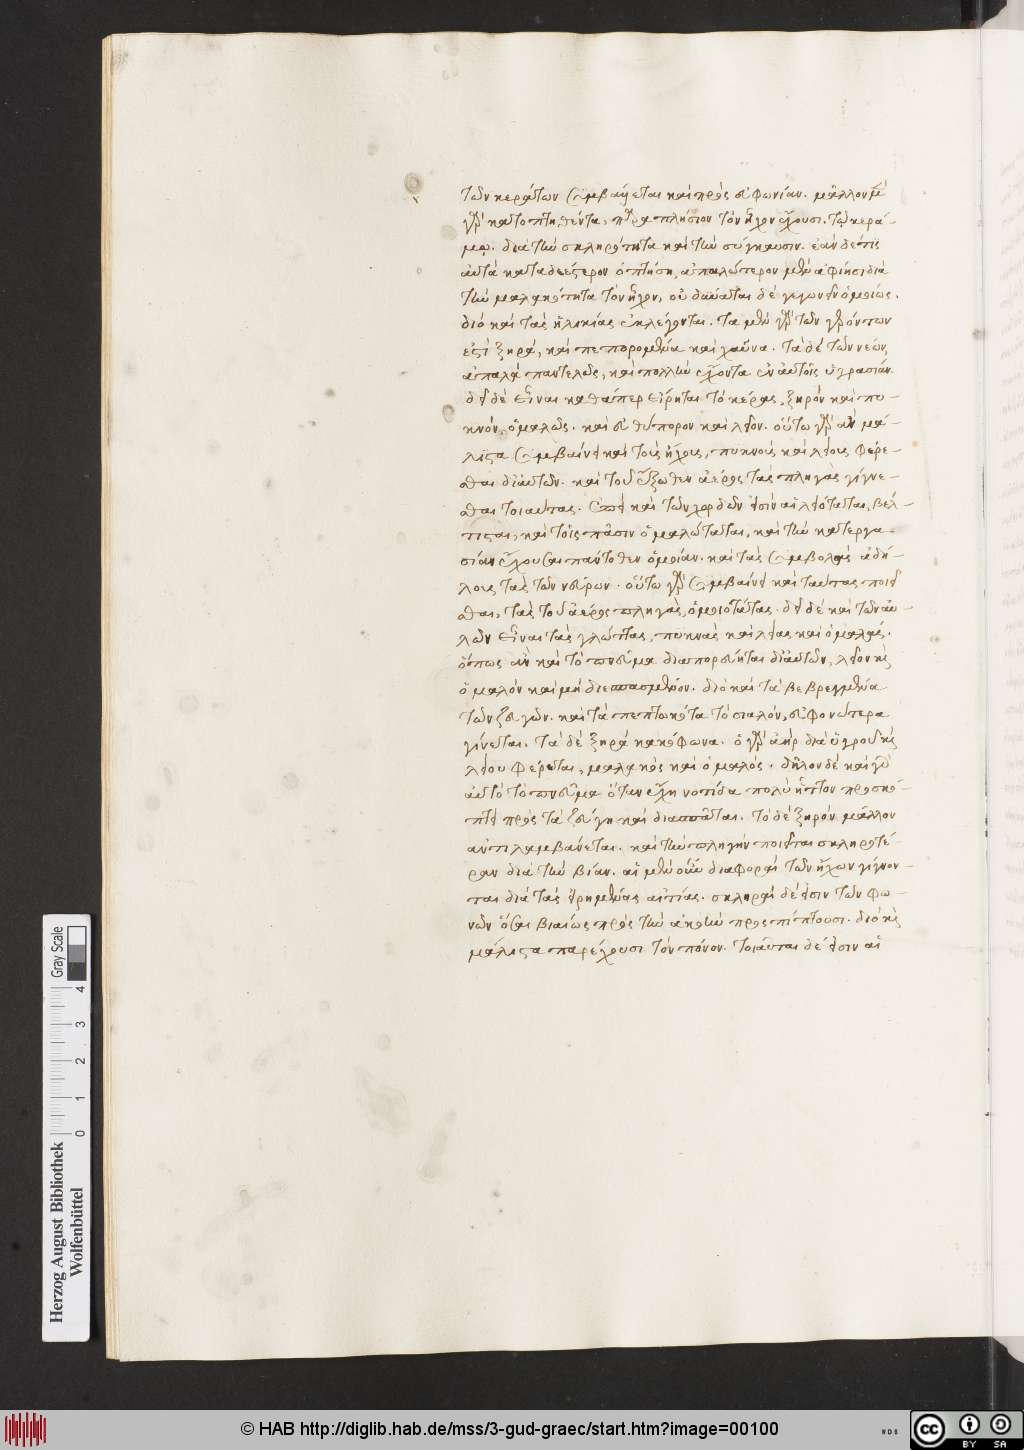 τῶν κεράτων συμβάλλεται καὶ πρὸς εὐφωνίαν. μᾶλλον μὲν
γὰρ κατοπτηθέντα, παραπλήσιον τὸν ἦχον ἔχουσι τῷ κερά-
μῳ. διὰ τὴν σκληρότητα καὶ τὴν σύγκαυσιν. ἐὰν δέ τις
αὐτὰ καταδεέστερον ὀπτήσῃ, ἁπαλώτερον μὲν ἀφίησι διὰ
τὴν μαλακότητα τὸν ἦχον, οὐ δύναται δὲ γεγωνεῖν ὁμοίως.
διὸ καὶ τὰς ἡλικίας ἐκλέγονται. τὰ μὲν γὰρ τῶν γερόντων
ἐστὶ ξηρά, καὶ πεπορωμένα καὶ χαῦνα. τὰ δὲ τῶν νέων,
ἁπαλὰ παντελῶς, καὶ πολλὴν ἔχοντα ἐν αὑτοῖς ὑγρασίαν.
δεῖ δὲ εἶναι καθάπερ εἴρηται τὸ κέρας, ξηρὸν καὶ πυ-
κνόν, ὁμαλῶς. καὶ εὐθύπορον καὶ λεῖον. οὕτω γὰρ ἂν μά-
λιστα συμβαίνει καὶ τοὺς ἤχους, πυκνοὺς καὶ λείους φέρε-
σθαι δι αὐτῶν. καὶ τοῦ ἔξωθεν ἀέρος τὰς πληγὰς γίγνε-
σθαι τοιαύτας. ἐπεὶ καὶ τῶν χορδῶν εἰσὶν αἱ λειόταται, βέλ-
τισται, καὶ τοῖς πᾶσιν ὁμαλώταται, καὶ τὴν κατεργα-
σίαν ἔχουσαι πάντοθεν ὁμοίαν. καὶ τὰς συμβολὰς ἀδή-
λους τὰς τῶν νεύρων. οὕτω γὰρ συμβαίνει καὶ ταύτας ποιεῖ
σθαι, τὰς τοῦ ἀέρος πληγάς, ὁμοιοτάτας. δεῖ δὲ καὶ τῶν αὐ-
λῶν εἶναι τὰς γλώττας, πυκνὰς καὶ λείας καὶ ὁμαλάς.
ὅπως ἂν καὶ τὸ πνεῦμα διαπορεύηται δι αὐτῶν, λεῖον καὶ
ὁμαλὸν καὶ μὴ διεσπασμένον. διὸ καὶ τὰ βεβρεγμένα
τῶν ζευγῶν. καὶ τὰ πεπωκότα τὸ σίαλον, εὐφωνότερα
γίνεται. τὰ δὲ ξηρὰ κακόφωνα. ὁ γὰρ ἀὴρ διὰ ὑγροῦ καὶ
λείου φέρεται, μαλακὸς καὶ ὁμαλός. δῆλον δὲ καὶ γὰρ
αὐτὸ τὸ πνεῦμα ὅταν ἔχῃ νοτίδα πολὺ ἧττον προσκό-
πτει πρὸς τὰ ζεύγη καὶ διασπᾶται. τὸ δὲ ξηρὸν μᾶλλον
ἀντιλαμβάνεται. καὶ τὴν πληγὴν ποιεῖται σκληροτέ-
ραν διὰ τὴν βίαν. αἱ μὲν οὖν διαφοραὶ τῶν ἤχων γίγνον-
ται διὰ τὰς εἰρημένας αἰτίας. σκληραὶ δέ εἰσιν τῶν φω-
νῶν ὅσαι βιαίως πρὸς τὴν ἀκοὴν προσπίπτουσι. διὸ καὶ
μάλιστα παρέχουσι τὸν πόνον. τοιαῦται δέ εἰσιν αἱ
Herzog August Bibliothek
Wolfenbüttel
0 1 2 3 4 Gray Scale
© HAB http://diglib.hab.de/mss/3-gud-graec/start.htm?image=00100
WDB
CC BY SA